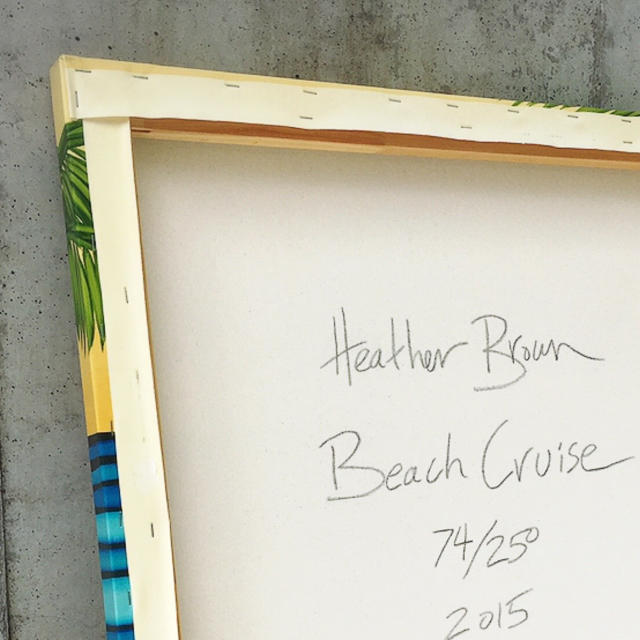 Heather Brown
Beach Cruise
74/250
2015